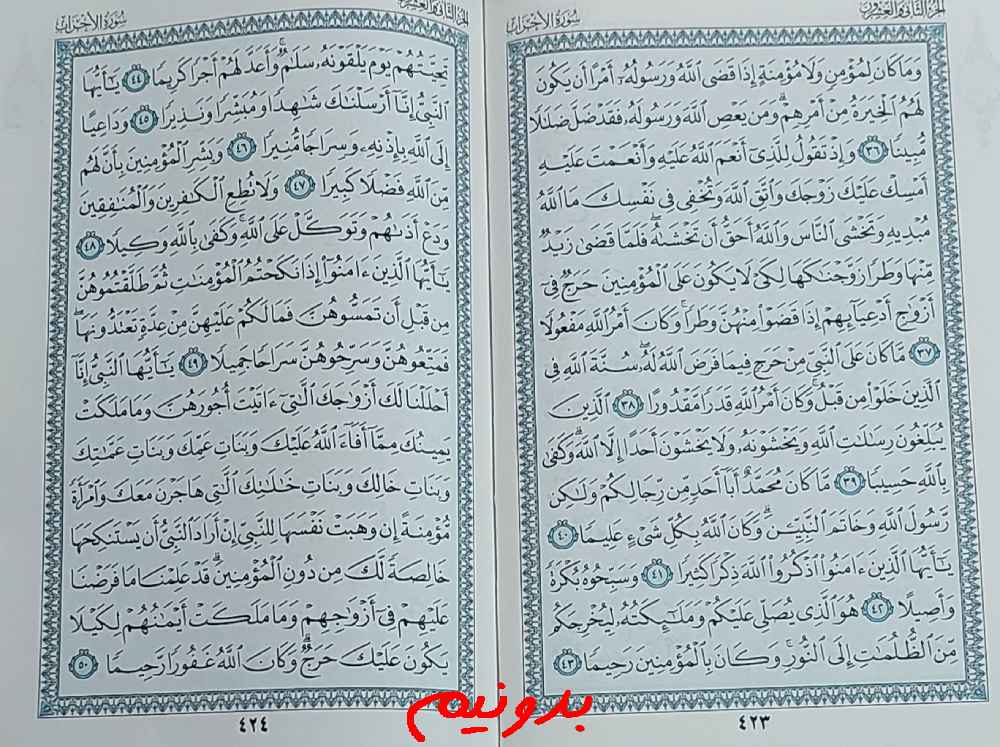 الجزء الثاني والعشرون
سورة الأحزاب
وَمَا كَانَ لِمُؤْمِنٍ وَلَا مُؤْمِنَةٍ إِذَا قَضَى ٱللَّهُ وَرَسُولُهُۥٓ أَمْرًا أَن يَكُونَ
لَهُمُ ٱلْخِيَرَةُ مِنْ أَمْرِهِمْ ۗ وَمَن يَعْصِ ٱللَّهَ وَرَسُولَهُۥ فَقَدْ ضَلَّ ضَلَٰلًا
مُّبِينًا ٣٦ وَإِذْ تَقُولُ لِلَّذِىٓ أَنْعَمَ ٱللَّهُ عَلَيْهِ وَأَنْعَمْتَ عَلَيْهِ
أَمْسِكْ عَلَيْكَ زَوْجَكَ وَٱتَّقِ ٱللَّهَ وَتُخْفِى فِى نَفْسِكَ مَا ٱللَّهُ
مُبْدِيهِ وَتَخْشَى ٱلنَّاسَ وَٱللَّهُ أَحَقُّ أَن تَخْشَىٰهُ ۖ فَلَمَّا قَضَىٰ زَيْدٌ
مِّنْهَا وَطَرًا زَوَّجْنَٰكَهَا لِكَىْ لَا يَكُونَ عَلَى ٱلْمُؤْمِنِينَ حَرَجٌ فِىٓ
أَزْوَٰجِ أَدْعِيَآئِهِمْ إِذَا قَضَوْا۟ مِنْهُنَّ وَطَرًا ۚ وَكَانَ أَمْرُ ٱللَّهِ مَفْعُولًا
٣٧ مَّا كَانَ عَلَى ٱلنَّبِىِّ مِنْ حَرَجٍ فِيمَا فَرَضَ ٱللَّهُ لَهُۥ ۖ سُنَّةَ ٱللَّهِ فِى
ٱلَّذِينَ خَلَوْا۟ مِن قَبْلُ ۚ وَكَانَ أَمْرُ ٱللَّهِ قَدَرًا مَّقْدُورًا ٣٨ ٱلَّذِينَ
يُبَلِّغُونَ رِسَٰلَٰتِ ٱللَّهِ وَيَخْشَوْنَهُۥ وَلَا يَخْشَوْنَ أَحَدًا إِلَّا ٱللَّهَ ۗ وَكَفَىٰ
بِٱللَّهِ حَسِيبًا ٣٩ مَّا كَانَ مُحَمَّدٌ أَبَآ أَحَدٍ مِّن رِّجَالِكُمْ وَلَٰكِن
رَّسُولَ ٱللَّهِ وَخَاتَمَ ٱلنَّبِيِّۦنَ ۗ وَكَانَ ٱللَّهُ بِكُلِّ شَىْءٍ عَلِيمًا ٤٠
يَٰٓأَيُّهَا ٱلَّذِينَ ءَامَنُوا۟ ٱذْكُرُوا۟ ٱللَّهَ ذِكْرًا كَثِيرًا ٤١ وَسَبِّحُوهُ بُكْرَةً
وَأَصِيلًا ٤٢ هُوَ ٱلَّذِى يُصَلِّى عَلَيْكُمْ وَمَلَٰٓئِكَتُهُۥ لِيُخْرِجَكُم
مِّنَ ٱلظُّلُمَٰتِ إِلَى ٱلنُّورِ ۚ وَكَانَ بِٱلْمُؤْمِنِينَ رَحِيمًا ٤٣
٤٢٣
الجزء الثاني والعشرون
سورة الأحزاب
تَحِيَّتُهُمْ يَوْمَ يَلْقَوْنَهُۥ سَلَٰمٌ ۚ وَأَعَدَّ لَهُمْ أَجْرًا كَرِيمًا ٤٤ يَٰٓأَيُّهَا
ٱلنَّبِىُّ إِنَّآ أَرْسَلْنَٰكَ شَٰهِدًا وَمُبَشِّرًا وَنَذِيرًا ٤٥ وَدَاعِيًا
إِلَى ٱللَّهِ بِإِذْنِهِۦ وَسِرَاجًا مُّنِيرًا ٤٦ وَبَشِّرِ ٱلْمُؤْمِنِينَ بِأَنَّ لَهُم
مِّنَ ٱللَّهِ فَضْلًا كَبِيرًا ٤٧ وَلَا تُطِعِ ٱلْكَٰفِرِينَ وَٱلْمُنَٰفِقِينَ
وَدَعْ أَذَىٰهُمْ وَتَوَكَّلْ عَلَى ٱللَّهِ ۚ وَكَفَىٰ بِٱللَّهِ وَكِيلًا ٤٨
يَٰٓأَيُّهَا ٱلَّذِينَ ءَامَنُوٓا۟ إِذَا نَكَحْتُمُ ٱلْمُؤْمِنَٰتِ ثُمَّ طَلَّقْتُمُوهُنَّ
مِن قَبْلِ أَن تَمَسُّوهُنَّ فَمَا لَكُمْ عَلَيْهِنَّ مِنْ عِدَّةٍ تَعْتَدُّونَهَا ۖ
فَمَتِّعُوهُنَّ وَسَرِّحُوهُنَّ سَرَاحًا جَمِيلًا ٤٩ يَٰٓأَيُّهَا ٱلنَّبِىُّ إِنَّآ
أَحْلَلْنَا لَكَ أَزْوَٰجَكَ ٱلَّٰتِىٓ ءَاتَيْتَ أُجُورَهُنَّ وَمَا مَلَكَتْ
يَمِينُكَ مِمَّآ أَفَآءَ ٱللَّهُ عَلَيْكَ وَبَنَاتِ عَمِّكَ وَبَنَاتِ عَمَّٰتِكَ
وَبَنَاتِ خَالِكَ وَبَنَاتِ خَٰلَٰتِكَ ٱلَّٰتِى هَاجَرْنَ مَعَكَ وَٱمْرَأَةً
مُّؤْمِنَةً إِن وَهَبَتْ نَفْسَهَا لِلنَّبِىِّ إِنْ أَرَادَ ٱلنَّبِىُّ أَن يَسْتَنكِحَهَا
خَالِصَةً لَّكَ مِن دُونِ ٱلْمُؤْمِنِينَ ۗ قَدْ عَلِمْنَا مَا فَرَضْنَا
عَلَيْهِمْ فِىٓ أَزْوَٰجِهِمْ وَمَا مَلَكَتْ أَيْمَٰنُهُمْ لِكَيْلَا
يَكُونَ عَلَيْكَ حَرَجٌ ۗ وَكَانَ ٱللَّهُ غَفُورًا رَّحِيمًا ٥٠
٤٢٤
بدونیم